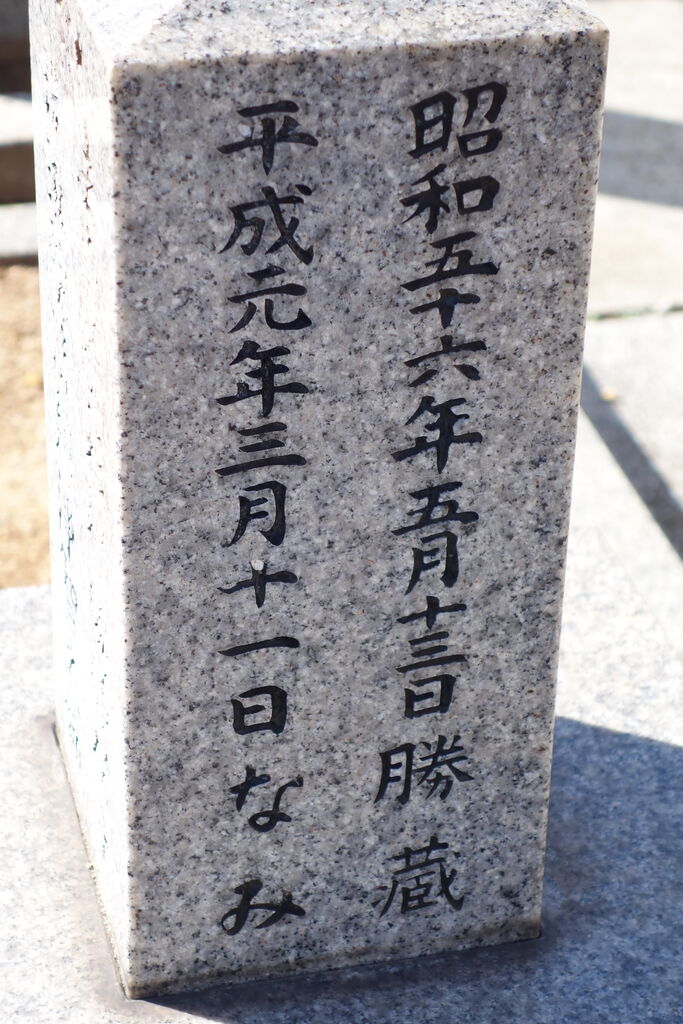 昭和五十六年五月十三日勝蔵
平成元年三月十一日なみ